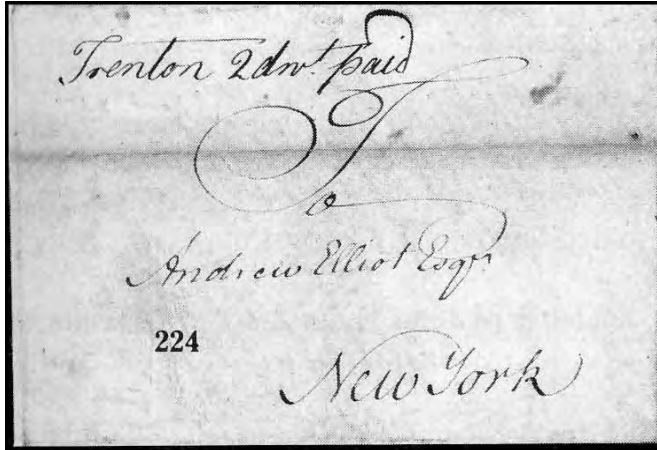 Trenton 2dwt paid
To
Andrew Elliot Esqr
224
New York